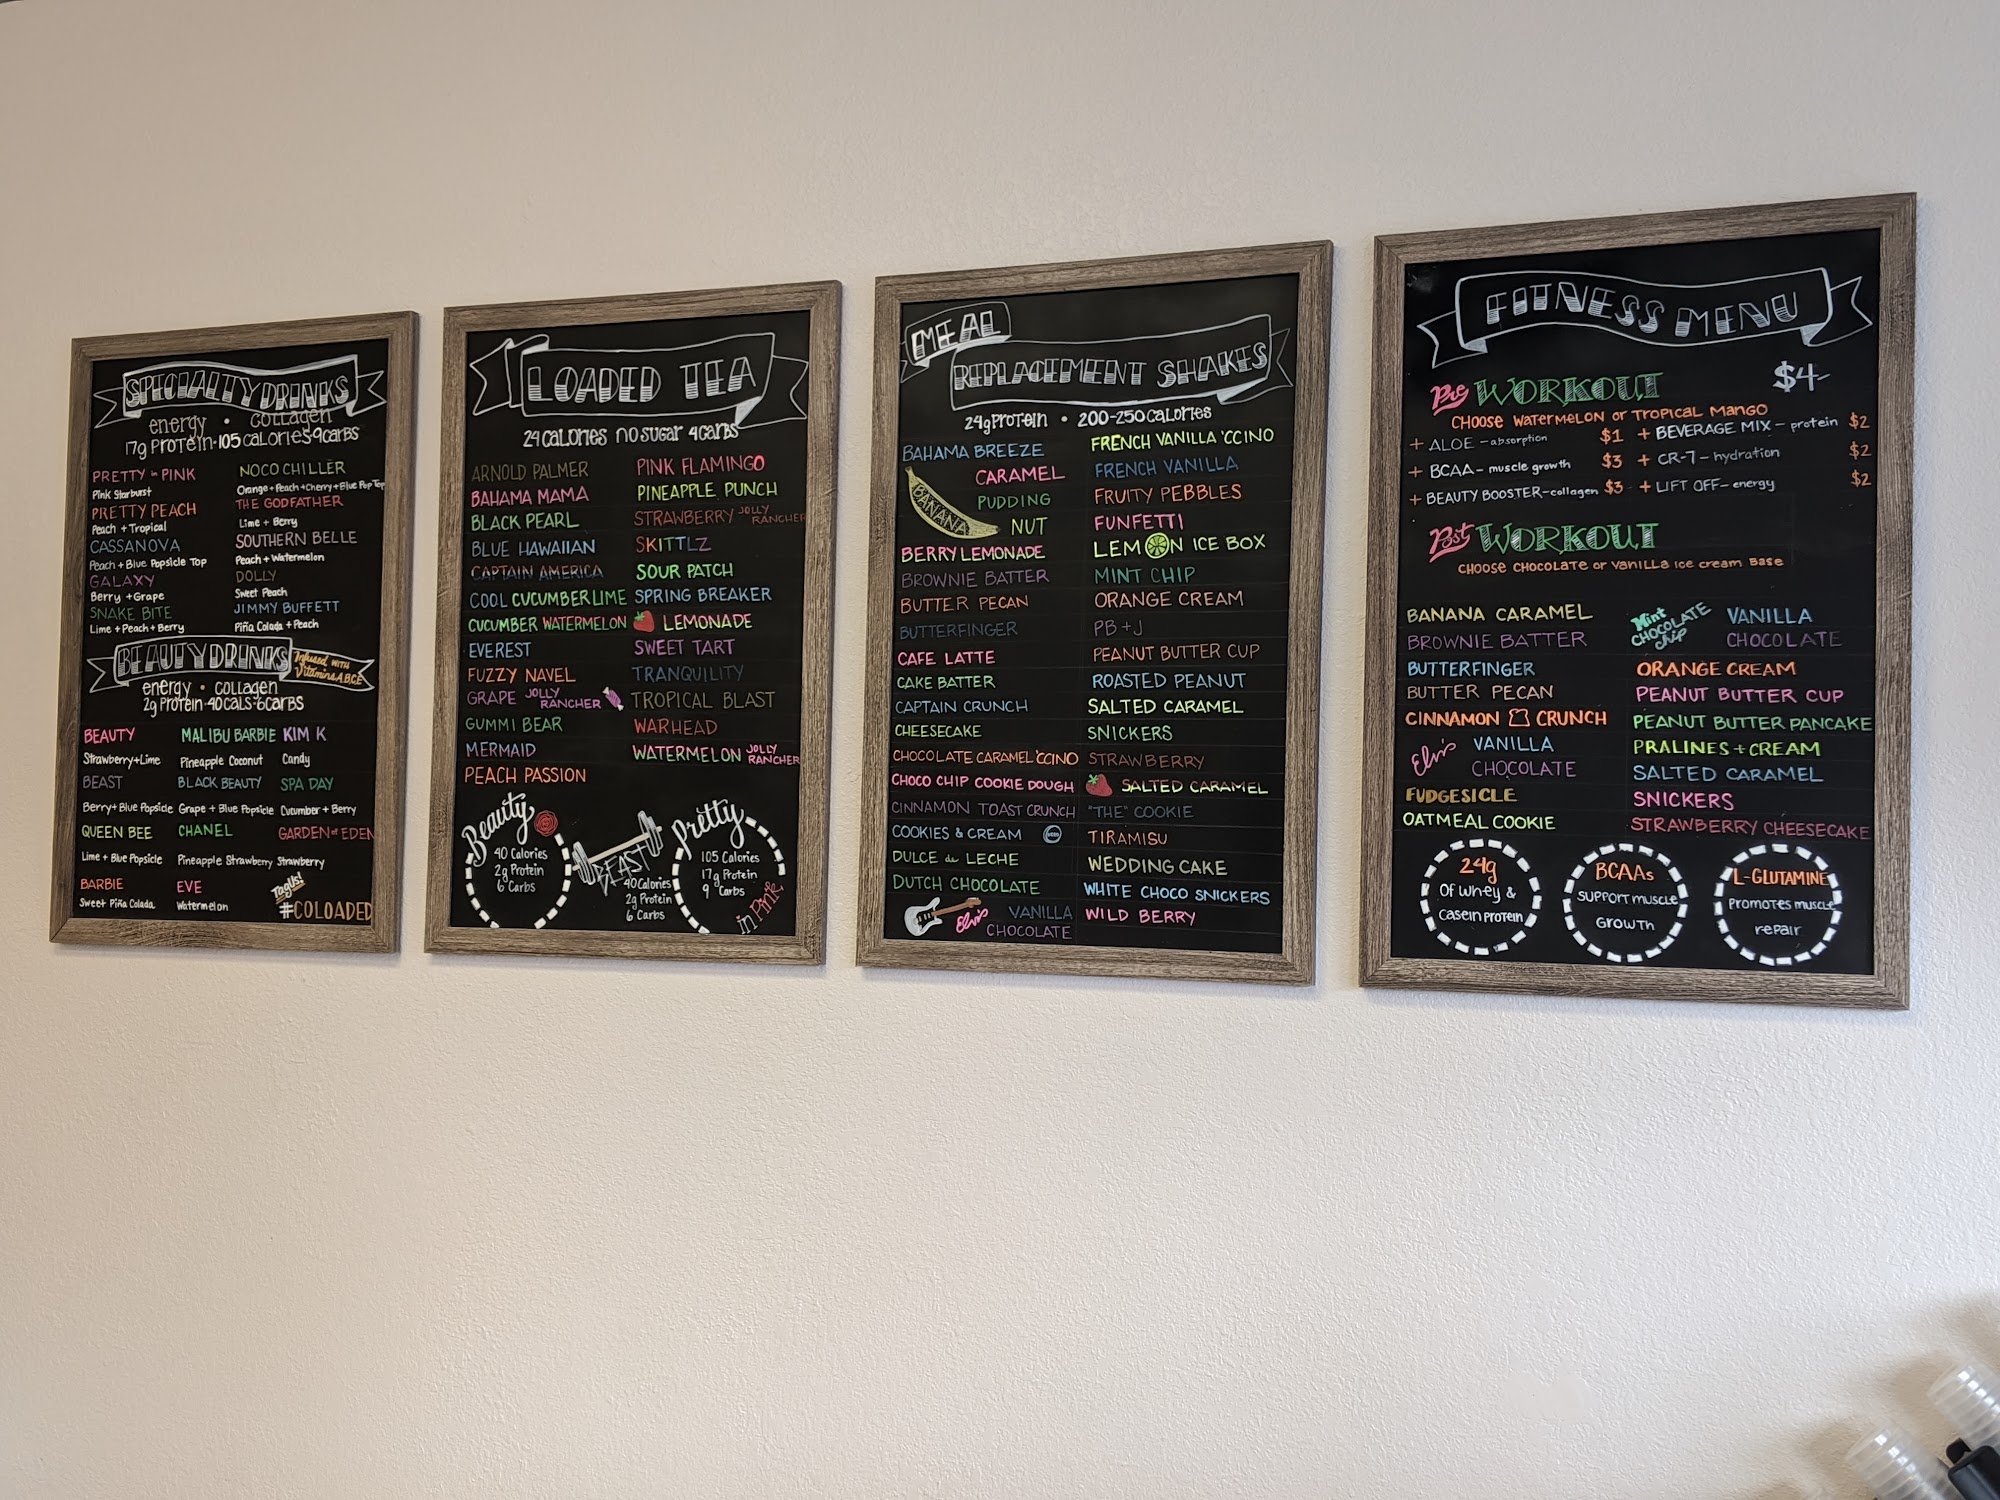 SPECIALTY DRINKS
energy • collagen
17g Protein • 105 calories • 9carbs
PRETTY in PINK
Pink Starburst
PRETTY PEACH
Peach + Tropical
CASSANOVA
Peach + Blue Popsicle Top
GALAXY
Berry + Grape
SNAKE BITE
Lime + Peach + Berry
NOCO CHILLER
Orange + Peach + Cherry + Blue Pop Top
THE GODFATHER
Lime + Berry
SOUTHERN BELLE
Peach + Watermelon
DOLLY
Sweet Peach
JIMMY BUFFETT
Piña Colada + Peach
BEAUTY DRINKS
Infused with
Vitamins A,B,C,E
energy • collagen
2g Protein • 40cals • 6carbs
BEAUTY MALIBU BARBIE KIM K
Strawberry+Lime Pineapple Coconut Candy
BEAST BLACK BEAUTY SPA DAY
Berry+ Blue Popsicle Grape + Blue Popsicle Cucumber + Berry
QUEEN BEE CHANEL GARDEN of EDEN
Lime + Blue Popsicle Pineapple Strawberry Strawberry
BARBIE EVE
Sweet Piña Colada Watermelon
Tag Us!
#COLOADED
LOADED TEA
24 calories no sugar 4carbs
ARNOLD PALMER
BAHAMA MAMA
BLACK PEARL
BLUE HAWAIIAN
CAPTAIN AMERICA
COOL CUCUMBER LIME
CUCUMBER WATERMELON
EVEREST
FUZZY NAVEL
GRAPE JOLLY RANCHER
GUMMI BEAR
MERMAID
PEACH PASSION
PINK FLAMINGO
PINEAPPLE PUNCH
STRAWBERRY JOLLY RANCHER
SKITTLZ
SOUR PATCH
SPRING BREAKER
LEMONADE
SWEET TART
TRANQUILITY
TROPICAL BLAST
WARHEAD
WATERMELON JOLLY RANCHER
Beauty
40 Calories
2g Protein
6 Carbs
BEAST
40 Calories
2g Protein
6 Carbs
Pretty
105 Calories
17g Protein
9 Carbs
in Pink
MEAL
REPLACEMENT SHAKES
24g Protein • 200-250 calories
BAHAMA BREEZE
BANANA
CARAMEL
PUDDING
NUT
BERRY LEMONADE
BROWNIE BATTER
BUTTER PECAN
BUTTERFINGER
CAFE LATTE
CAKE BATTER
CAPTAIN CRUNCH
CHEESECAKE
CHOCOLATE CARAMEL 'CCINO
CHOCO CHIP COOKIE DOUGH
CINNAMON TOAST CRUNCH
COOKIES & CREAM
DULCE de LECHE
DUTCH CHOCOLATE
Elvis VANILLA
CHOCOLATE
FRENCH VANILLA 'CCINO
FRENCH VANILLA
FRUITY PEBBLES
FUNFETTI
LEMON ICE BOX
MINT CHIP
ORANGE CREAM
PB + J
PEANUT BUTTER CUP
ROASTED PEANUT
SALTED CARAMEL
SNICKERS
STRAWBERRY
SALTED CARAMEL
"THE" COOKIE
TIRAMISU
WEDDING CAKE
WHITE CHOCO SNICKERS
WILD BERRY
FITNESS MENU
Pre WORKOUT $4-
CHOOSE WATERMELON or TROPICAL MANGO
+ ALOE - absorption $1 + BEVERAGE MIX - protein $2
+ BCAA - muscle growth $3 + CR-7 - hydration $2
+ BEAUTY BOOSTER - collagen $3 + LIFT OFF - energy $2
Post WORKOUT
CHOOSE CHOCOLATE or VANILLA ICE CREAM BASE
BANANA CARAMEL
BROWNIE BATTER
BUTTERFINGER
BUTTER PECAN
CINNAMON CRUNCH
Elvis VANILLA
CHOCOLATE
FUDGESICLE
OATMEAL COOKIE
Mint CHOCOLATE Chip VANILLA
CHOCOLATE
ORANGE CREAM
PEANUT BUTTER CUP
PEANUT BUTTER PANCAKE
PRALINES + CREAM
SALTED CARAMEL
SNICKERS
STRAWBERRY CHEESECAKE
24g
Of whey &
Casein protein
BCAAs
SUPPORT muscle
Growth
L-GLUTAMINE
Promotes muscle
repair